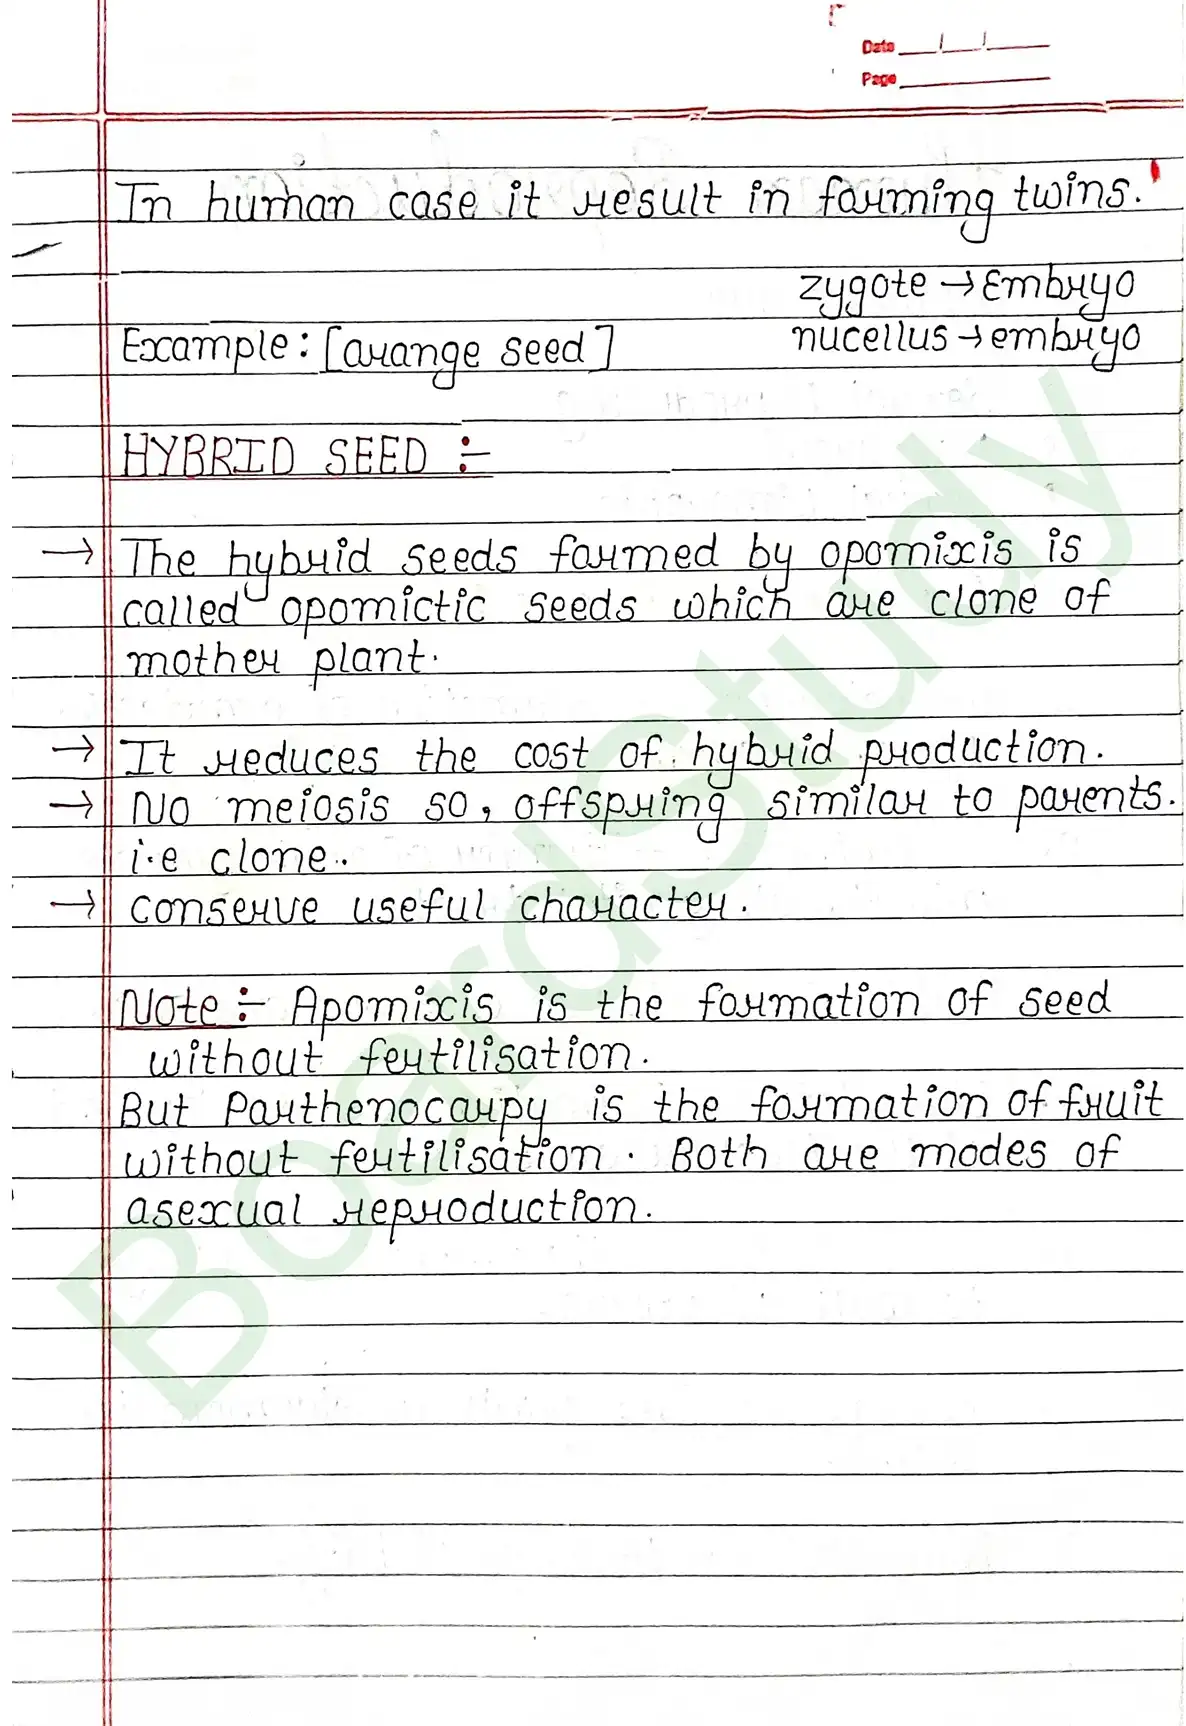 Date
Page
In human case it result in forming twins.
zygote → Embryo
nucellus → embryo
Example : [orange seed]
HYBRID SEED :-
→ The hybrid seeds formed by opomixis is
called opomictic seeds which are clone of
mother plant.
→ It reduces the cost of hybrid production.
→ No meiosis so, offspring similar to parents.
i.e clone..
→ conserve useful character.
Note :- Apomixis is the formation of seed
without fertilisation.
But Parthenocarpy is the formation of fruit
without fertilisation. Both are modes of
asexual reproduction.
BoardStudy